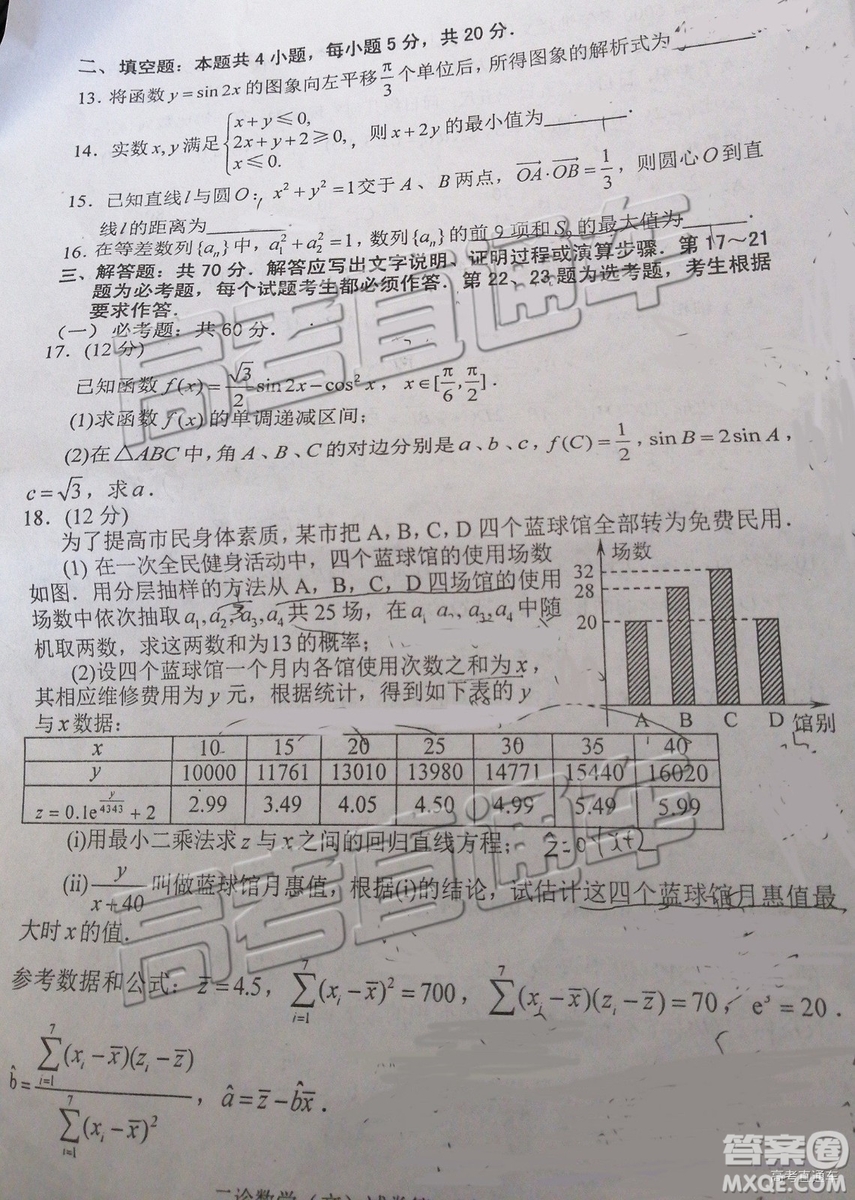 二、填空题：本题共4小题，每小题5分，共20分．
13．将函数 y＝sin 2x 的图象向左平移 π/3 个单位后，所得图象的解析式为________
14．实数 x, y 满足 { x＋y⩽0, 2x＋y＋2⩾0, x⩽0. 则 x＋2y 的最小值为________
15．已知直线 l 与圆 O：x²＋y²＝1 交于 A、B 两点，OA·OB＝1/3，则圆心 O 到直
线 l 的距离为________
16．在等差数列{aₙ}中，a₁²＋a₂²＝1，数列{aₙ}的前 9 项和 S₉ 的最大值为________
三、解答题：共 70 分．解答应写出文字说明、证明过程或演算步骤．第 17～21
题为必考题，每个试题考生都必须作答．第 22、23 题为选考题，考生根据
要求作答．
（一）必考题：共 60 分．
17．(12 分)
已知函数 f(x)＝√3/2 sin 2x－cos² x，x∈[π/6, π/2]．
(1)求函数 f(x) 的单调递减区间；
(2)在△ABC 中，角 A、B、C 的对边分别是 a、b、c，f(C)＝1/2，sin B＝2sin A，
c＝√3，求 a．
18．(12 分)
为了提高市民身体素质，某市把 A，B，C，D 四个蓝球馆全部转为免费民用．
(1) 在一次全民健身活动中，四个蓝球馆的使用场数
如图．用分层抽样的方法从 A，B，C，D 四场馆的使用
场数中依次抽取 a₁, a₂, a₃, a₄ 共 25 场，在 a₁ a₃, a₄ 中随
机取两数，求这两数和为 13 的概率；
(2)设四个蓝球馆一个月内各馆使用次数之和为 x，
其相应维修费用为 y 元，根据统计，得到如下表的 y
与 x 数据：
场数
32
28
20
A B C D 馆别
x 10 15 20 25 30 35 40
y 10000 11761 13010 13980 14771 15440 16020
z＝0.1e^(y/4343)＋2 2.99 3.49 4.05 4.50 4.99 5.49 5.99
(i)用最小二乘法求 z 与 x 之间的回归直线方程；
(ii) y/(x＋40) 叫做蓝球馆月惠值，根据(i)的结论，试估计这四个蓝球馆月惠值最
大时 x 的值．
参考数据和公式：z̄＝4.5，∑(i=1→7)(xᵢ－x̄)²＝700，∑(i=1→7)(xᵢ－x̄)(zᵢ－z̄)＝70，e³＝20．
b̂＝∑(i=1→7)(xᵢ－x̄)(zᵢ－z̄) / ∑(i=1→7)(xᵢ－x̄)²，â＝z̄－b̂x̄．
高考直通车
高考直通车
高考直通车
答案圈
MXQE.COM